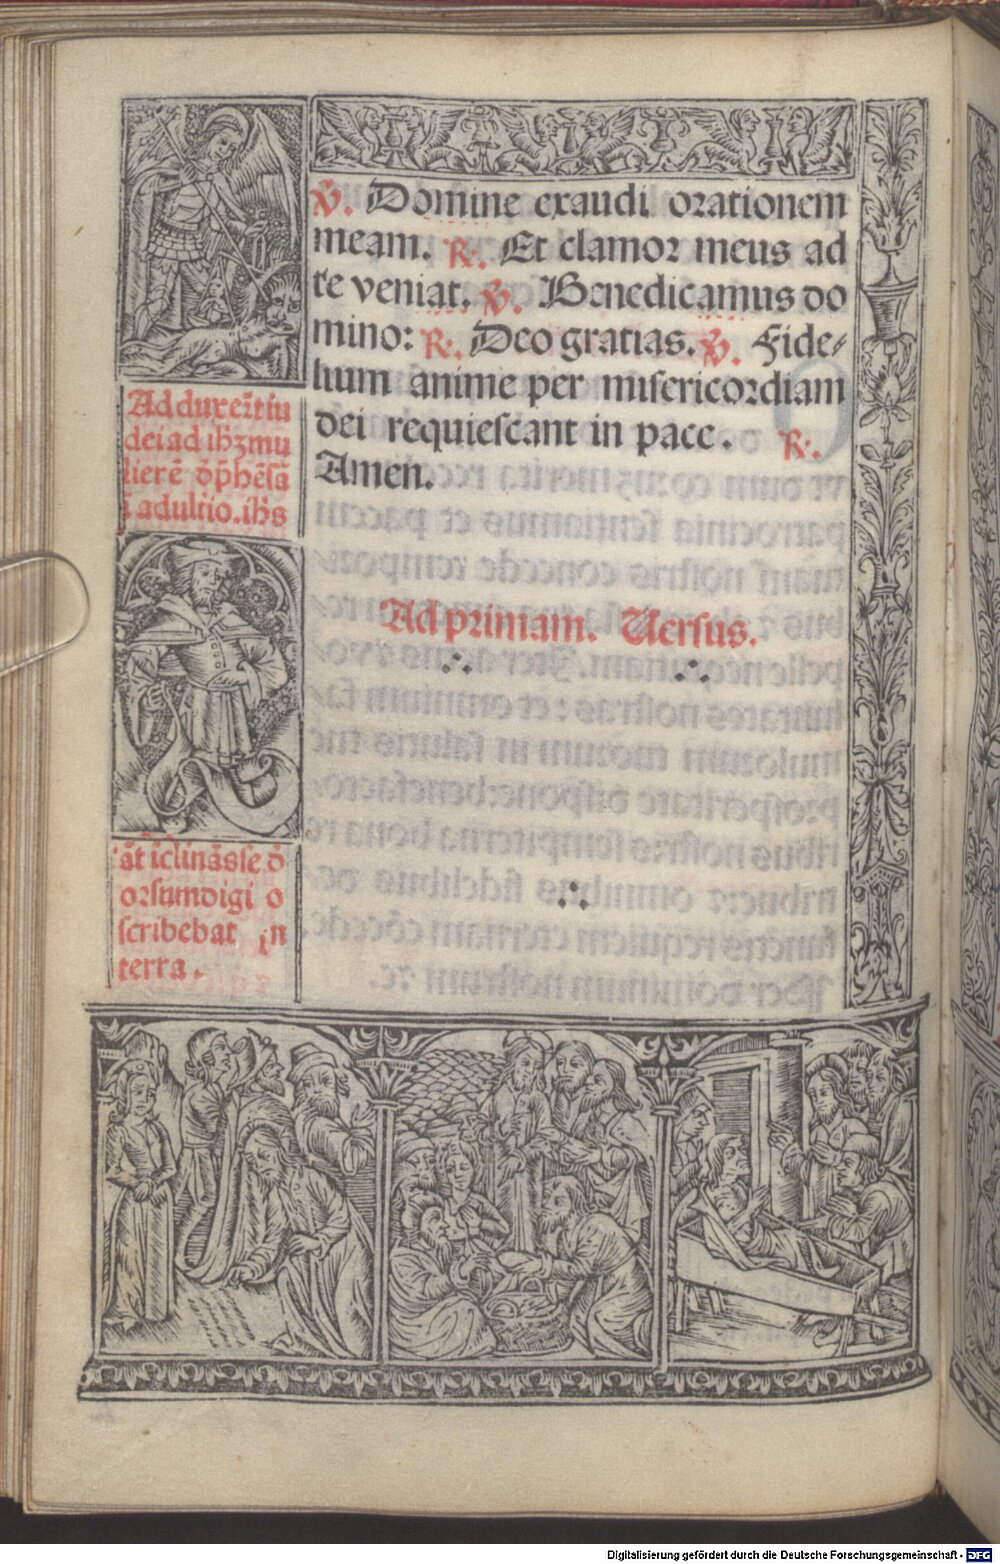 ℣. Domine exaudi orationem
meam. ℟. Et clamor meus ad
te veniat. ℣. Benedicamus do
mino: ℟. Deo gratias. ℣. Fide⸗
lium anime per misericordiam
dei requiescant in pace. ℟.
Amen.
Ad primam. Versus.
Adduxer̄t iu
dei ad ihꝫ mu
lierē
ī adultio. ihs
āt īclinās se d̄
orsum digi o
scribebat in
terra.
Digitalisierung gefördert durch die Deutsche Forschungsgemeinschaft - DFG